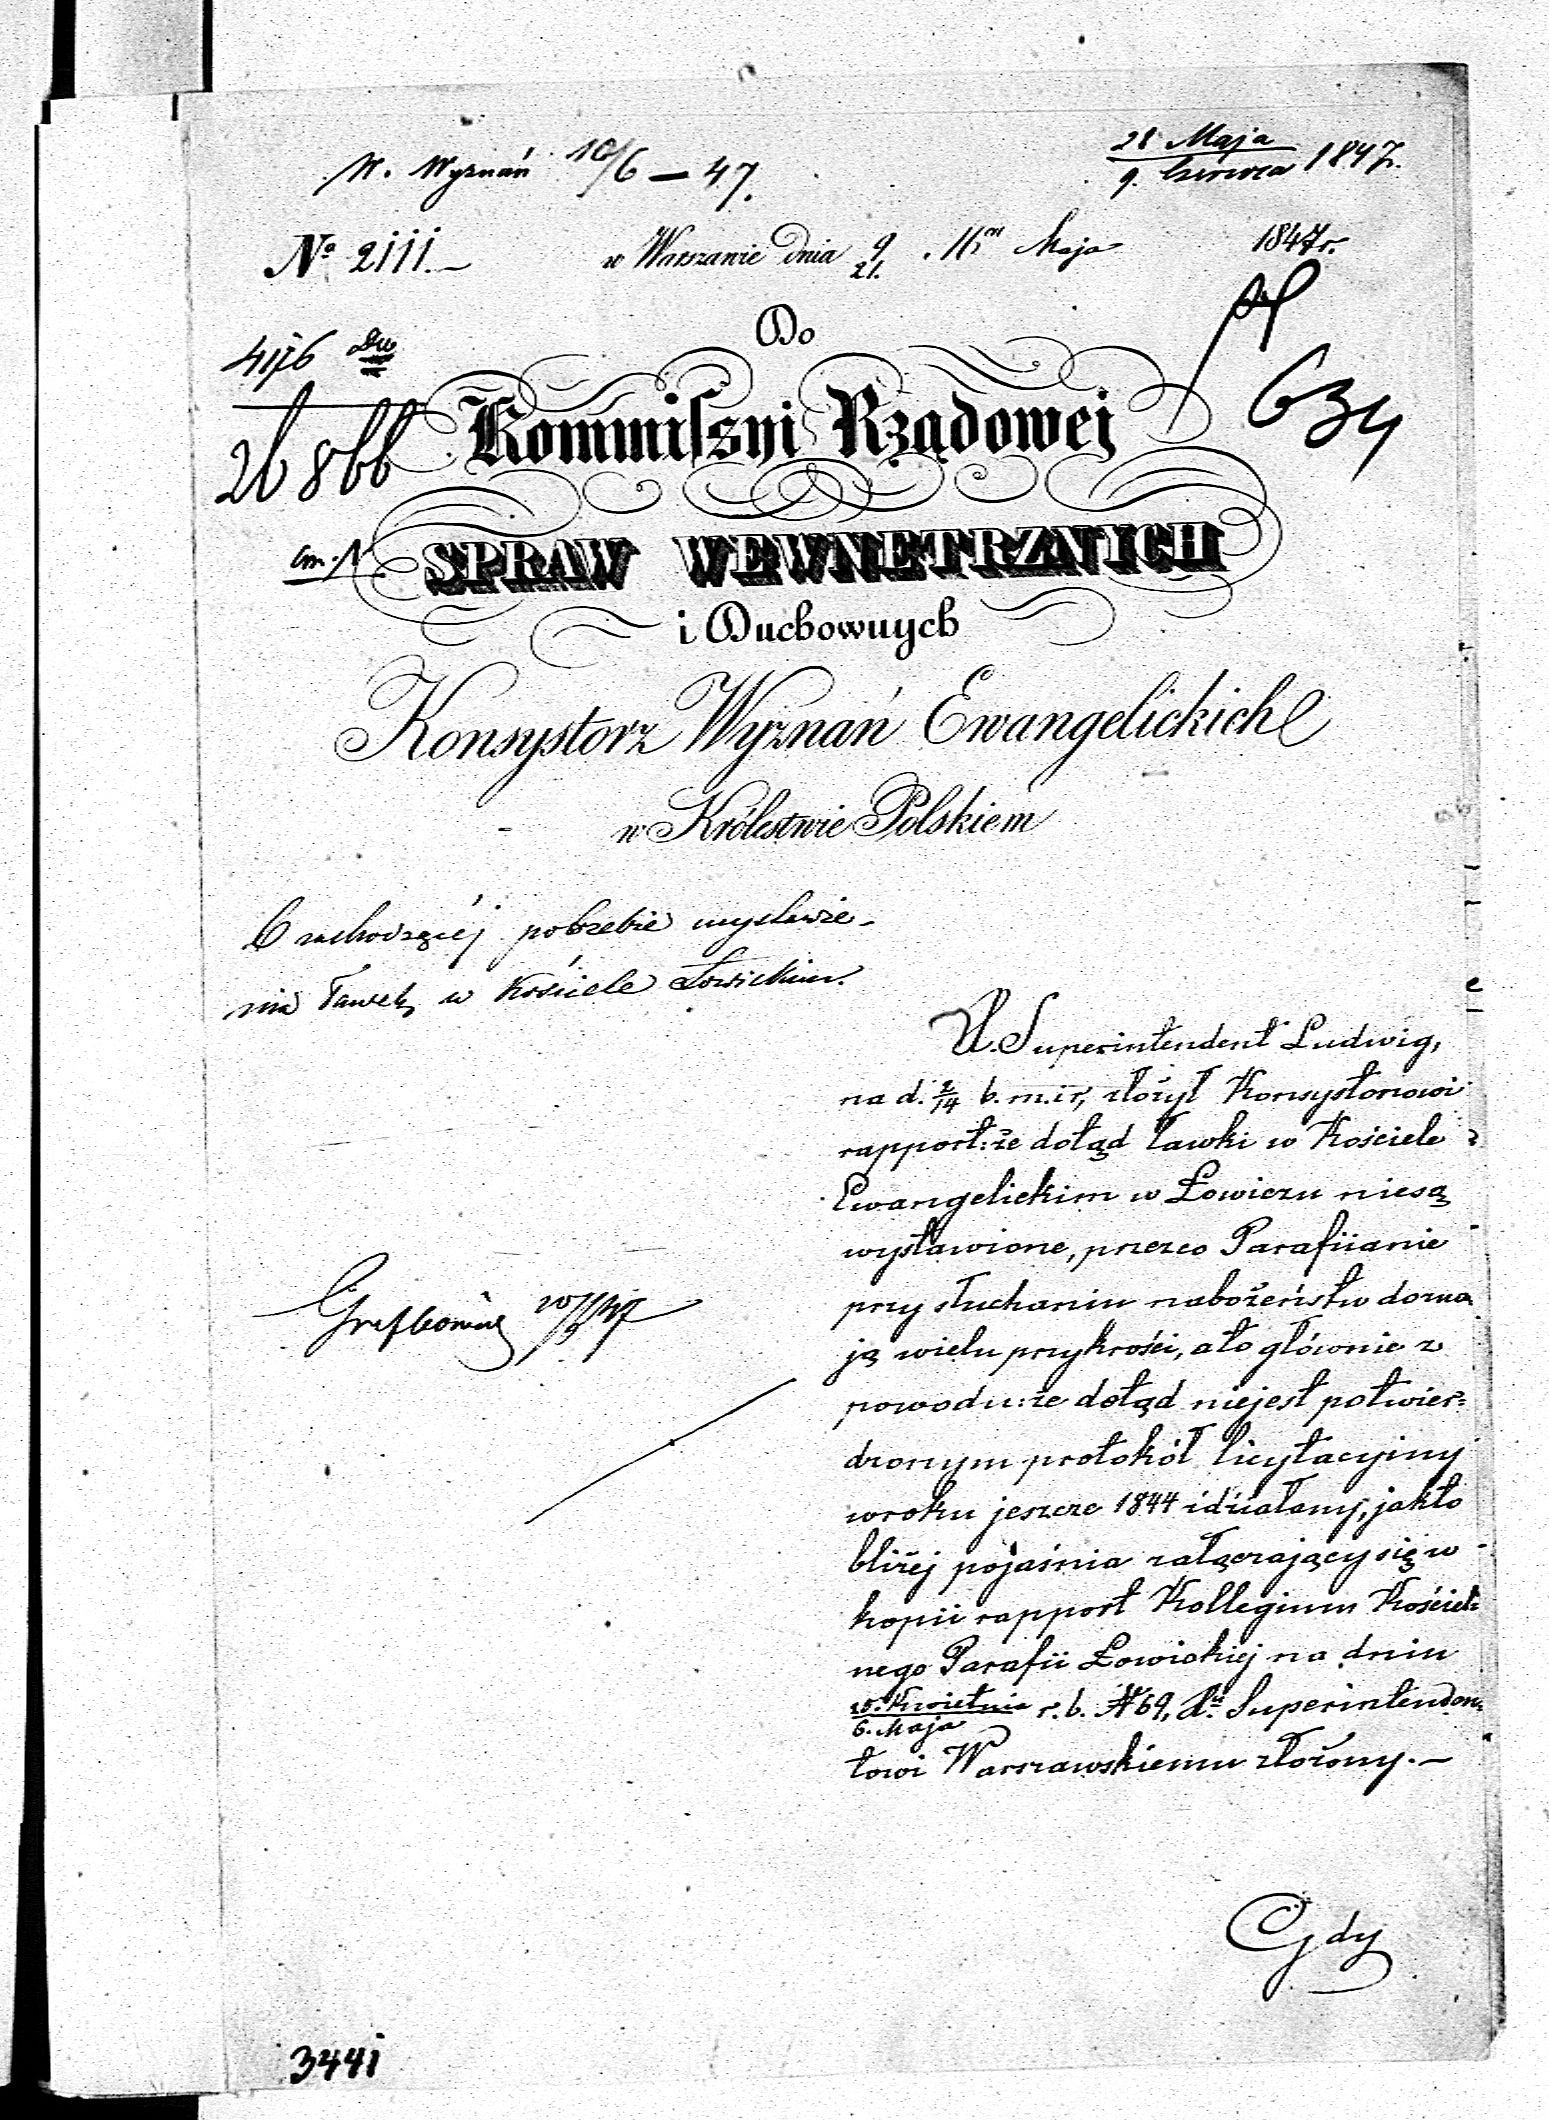 W. Wyznań 10/6 – 47.
28 Maja
9. Czerwca 1847.
No 2111.
w Warszawie dnia 9/21. Maja 1847 r.
Do
634
Kommissyi Rządowej
26866
SPRAW WEWNĘTRZNYCH
i Duchownych
Konsystorz Wyznań Ewangelickich
w Królestwie Polskiem
O zachodzącéj potrzebie wystawie-
nia Ławek w Kościele Łowickim.
X. Superintendent Ludwig,
na d. 2/14 b. m. i r, złożył Konsystorzowi
rapport: że dotąd ławki w Kościele
Ewangelickim w Łowiczu niesą
wystawione, przezco Parafiianie
przy słuchaniu nabożeństw dozna
ją wielu przykrości, a to głównie z
powodu: że dotąd niejest potwier=
dzonym protokół licytacyiny
w roku jeszcze 1844 zdziałany, jak to
bliżej pojaśnia załączający się w
kopii rapport Kollegium Kościel=
nego Parafii Łowickiej na dniu
25. Kwietnia
6. Maja r. b. № 69, Xu Superintenden=
towi Warszawskiemu złożony.—
Gdy
3441